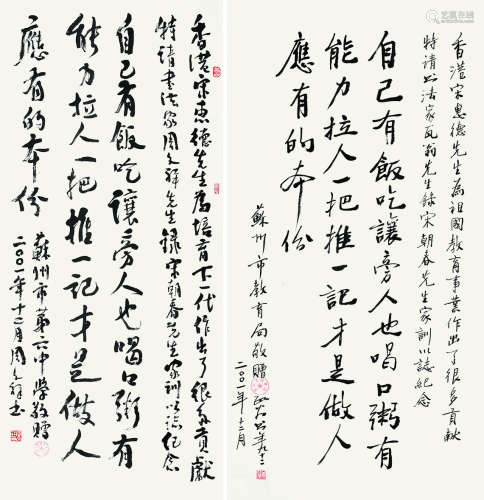 香港宋惠德先生為祖國教育事業作出了很多貢獻
特請书法家瓦翁先生錄宋朝春先生家訓以誌紀念
自己有飯吃讓旁人也喝口粥有
能力拉人一把推一記才是做人
應有的本份
蘇州市教育局敬贈
二〇〇一年十二月
香港宋惠德先生為培育下一代作出了很多貢獻
特請书法家周文祥先生錄宋朝春先生家訓以誌紀念
自己有飯吃讓旁人也喝口粥有
能力拉人一把推一記才是做人
應有的本份
蘇州市第六中學敬贈
二〇〇一年十二月周文祥书